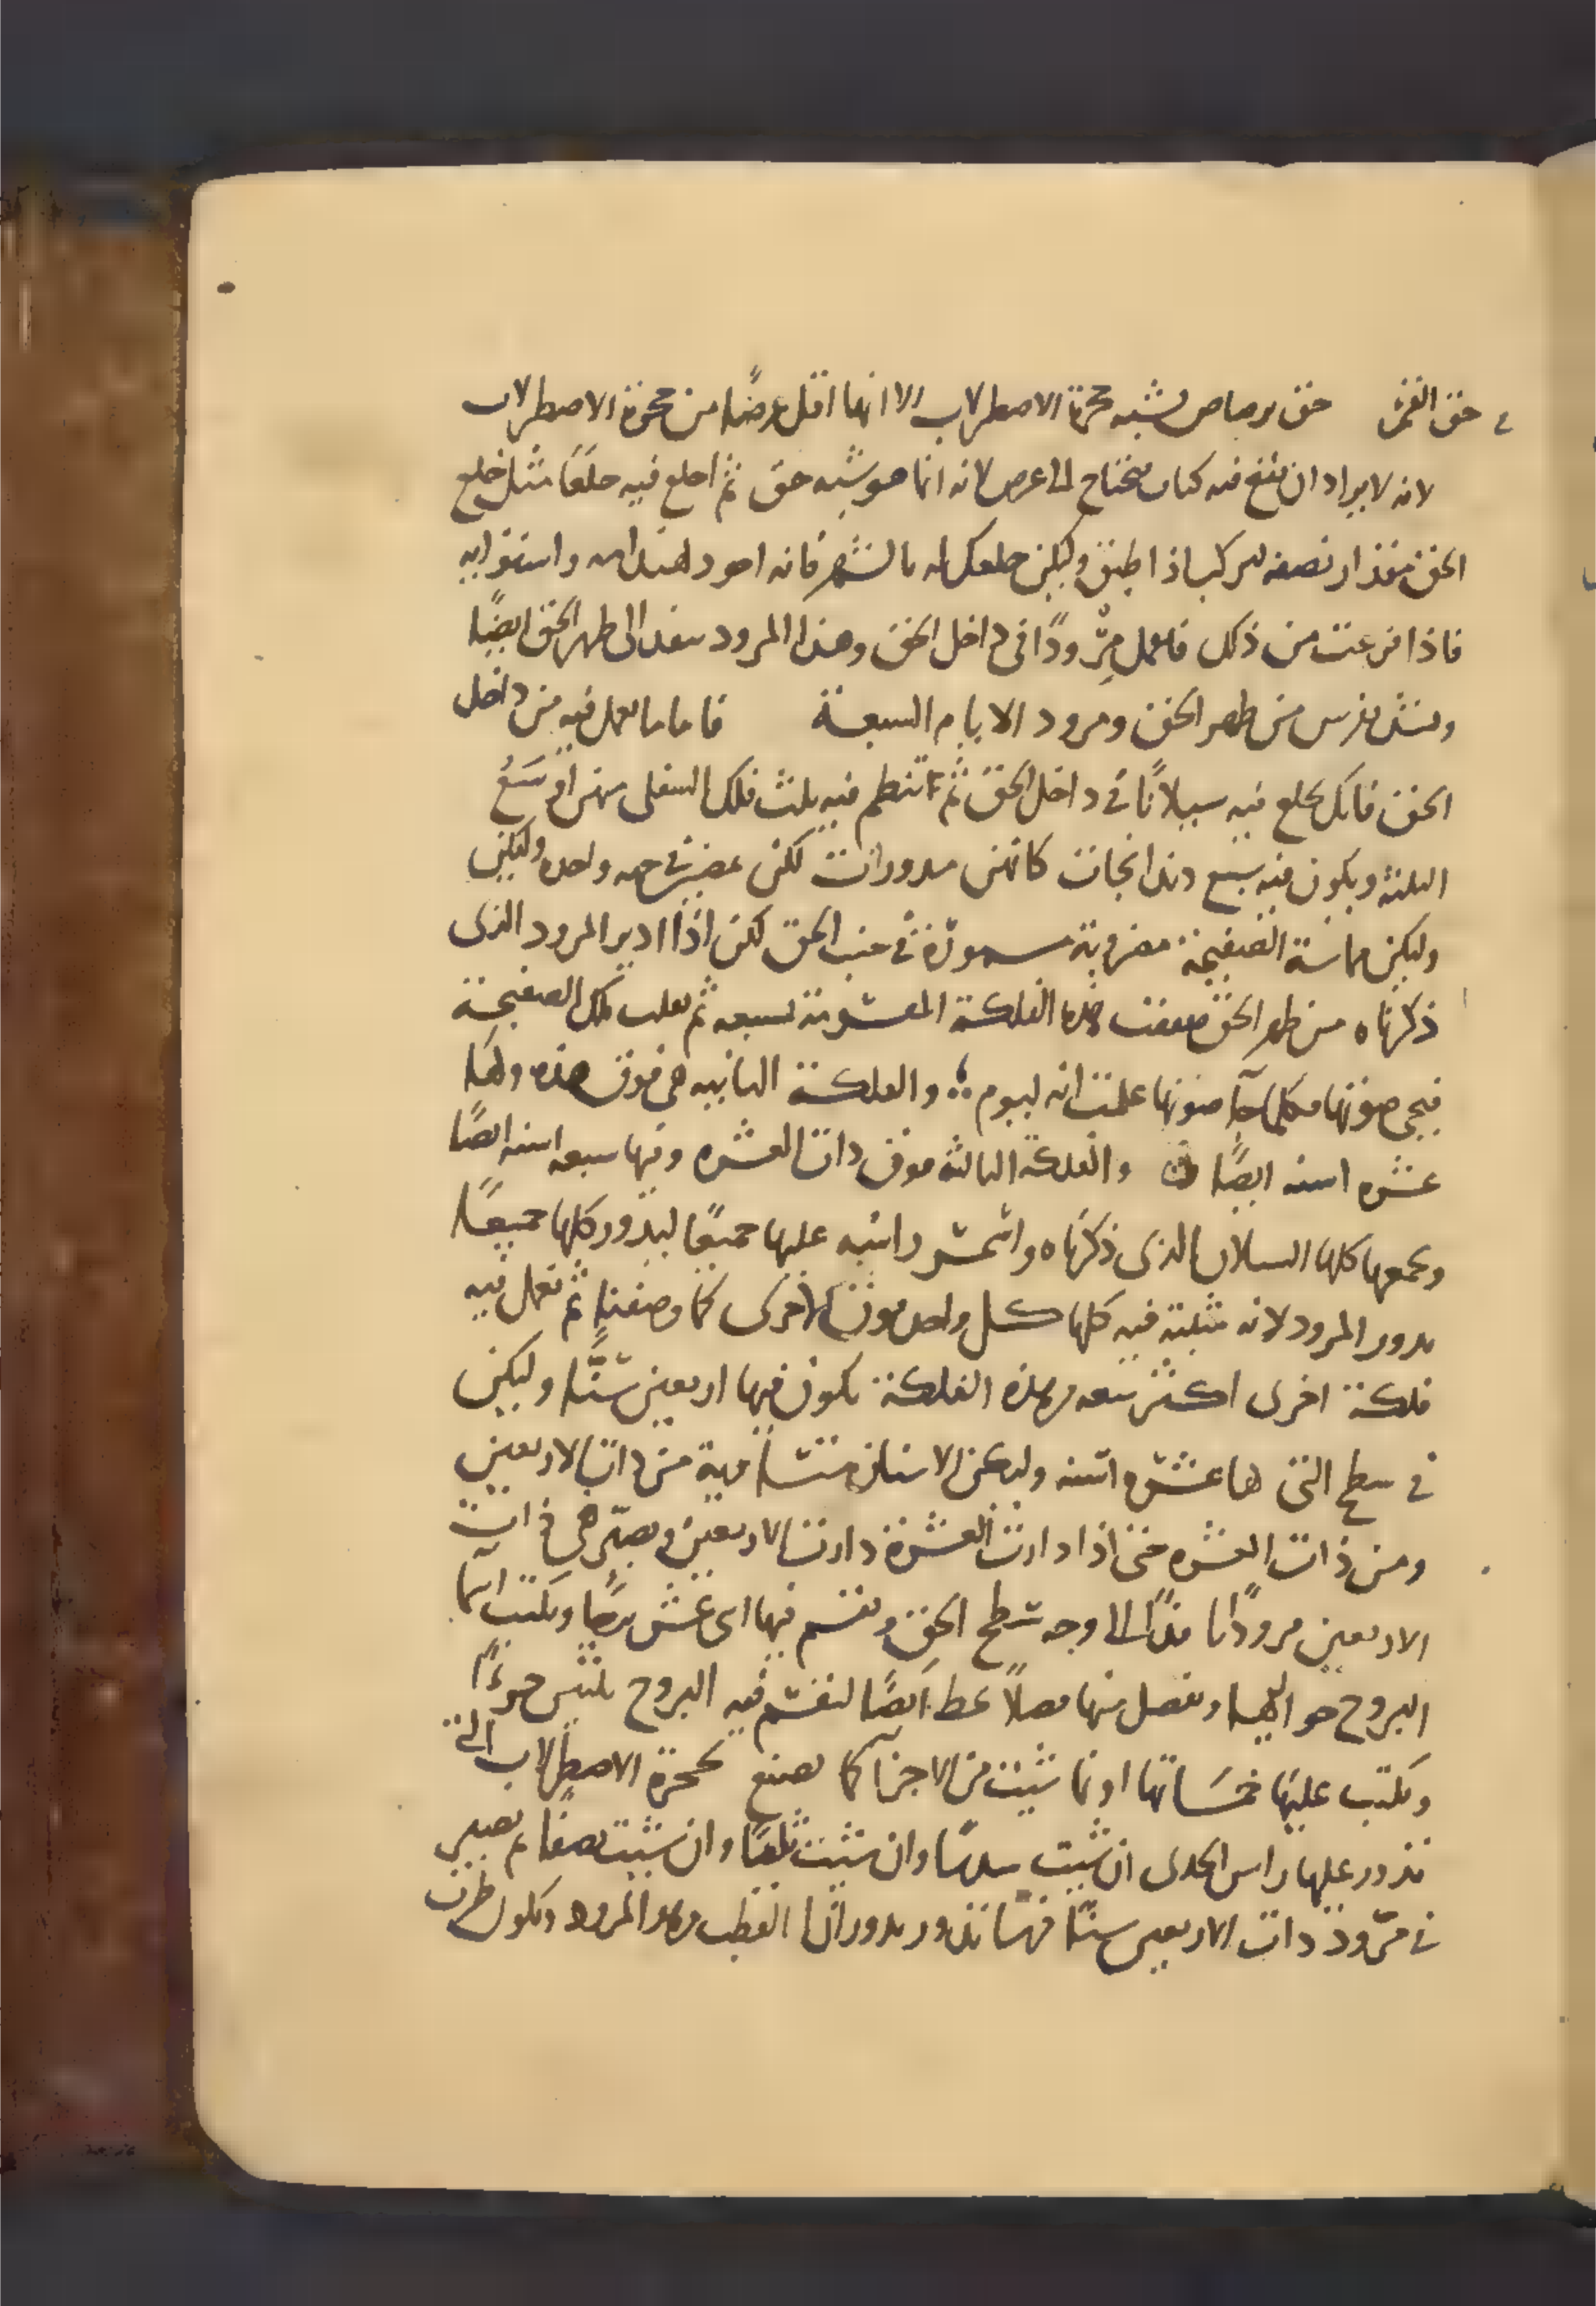 في حق القمر حق برصاص يشبه حجرة الاصطرلاب الا انها اقل عرضا من حجرة الاصطرلاب
لانه لا يراد ان يقع فيه كتاب فيحتاج الى عرض لانه انما هو يشبه حق ثم اخلع فيه خلعًا مثل خلع
الحق مقدار نصفه ليركب اذا اطبق وليكن خلعك له بالشهر فانه اجود لهندامه واستوائه
فاذا فرغت من ذلك فاعمل مِرْودًا في داخل الحق وهذا المرود ينفذ الى ظهر الحق ايضًا
من ظهر الحق ومرود الايام السبعة فاما ما يعمل فيه من داخل
الحق فانك تخلع فيه سيلانًا في داخل الحق ثم تنظم فيه ثلث فلك السفلى منهن
الثلثة ويكون فيه سبع كانهن مدورات لكن في جهة واحدة وليكن
وليكن مماسة الصفيحة مضروبة مسمورة في جنب الحق لكن اذا ادير المرود الذي
ذكرناه من ظهر الحق هذه الفلكة المقسومة لسبعة ثم تلك الصفيحة
فيجي صوتها فكلما جآ صوتها علمت انه ليوم والفلكة الثانيه هي فوق هذه ولها
عشره اسنه ايضًا والفلكة الثالثة فوق ذات العشره وفيها سبعه اسنه ايضًا
ويجمعها كلها السيلان الذي ذكرناه عليها جميعًا ليدور كلها جميعًا
بدور المرود لانه مثبتة فيه كلها كل واحد فوق الاخرى كما وصفنا ثم تعمل فيه
فلكة اخرى اكثر سعه من هذه الفلكة يكون فيها اربعين سنًّا وليكن
في سطح التي لها عشره اسنه وليكن الاسنان متساوية من ذات الاربعين
ومن ذات العشره حتى اذا دارت العشرة دارت الاربعين ويصيّر في ذات
الاربعين مرودًا نافذًا الى وجه سطح الحق ويقسم فيها اثني عشر برجًا ويكتب اسمآ
البروج حواليها ويفصل منها فصلاً بخط ايضًا لتقسم فيه البروج بثلثين جزءًا
ويكتب عليها خمساتها او ما شيت من الاجزآ كما يصنع بحجرة الاصطرلاب التي
يدور عليها راس الجدي ان شيت سدسًا وان شيت ثلثًا وان شيت نصفًا ثم يصير
في مرود ذات الاربعين سنًّا تدور بدوران القطب وهو المرود ويكون طرف